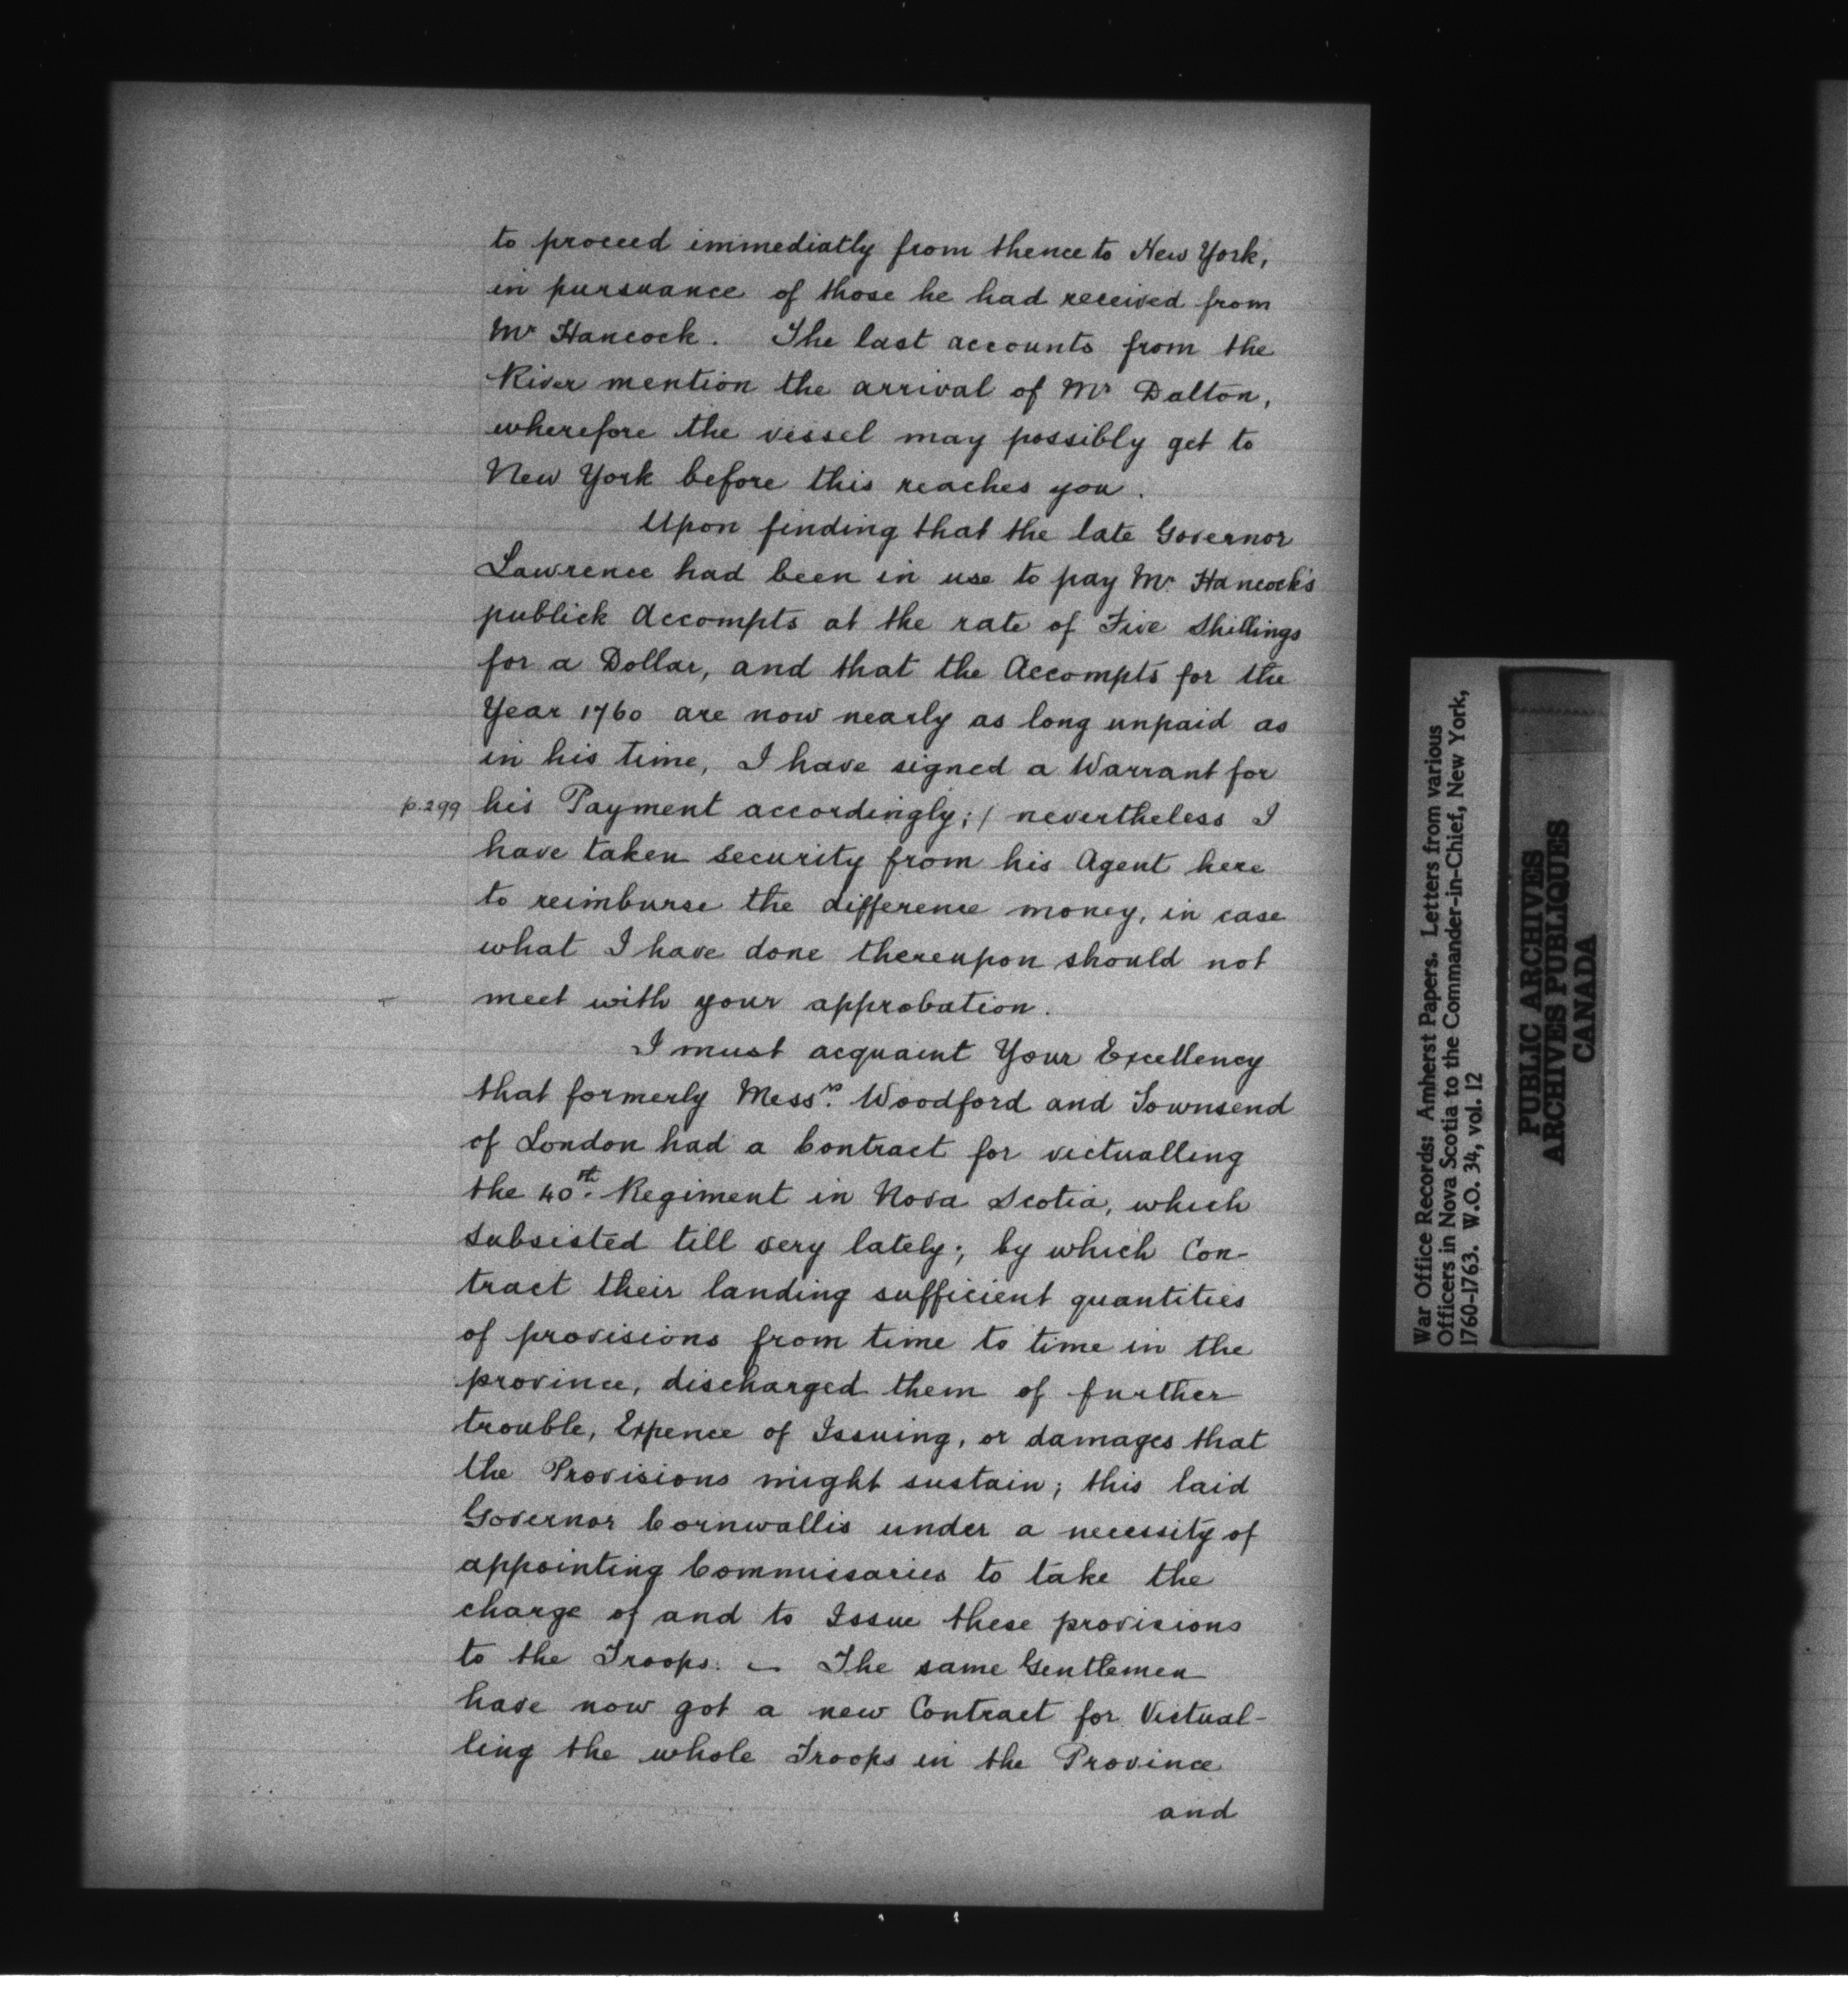 to proceed immediatly from thence to New York,
in pursuance of those he had received from
Mr Hancock. The last accounts from the
River mention the arrival of Mr Dalton,
wherefore the vessel may possibly get to
New York before this reaches you.
Upon finding that the late Governor
Lawrence had been in use to pay Mr. Hancock's
publick Accompts at the rate of Five Shillings
for a Dollar, and that the Accompts for the
Year 1760 are now nearly as long unpaid as
in his time, I have signed a Warrant for
p.299 his Payment accordingly; / nevertheless I
have taken security from his Agent here
to reimburse the difference money, in case
what I have done thereupon should not
meet with your approbation.
I must acquaint Your Excellency
that formerly Messrs. Woodford and Townsend
of London had a Contract for victualling
the 40th. Regiment in Nova Scotia, which
subsisted till very lately; by which Con-
tract their landing sufficient quantities
of provisions from time to time in the
province, discharged them of further
trouble, Expence of Issuing, or damages that
the Provisions might sustain; this laid
Governor Cornwallis under a necessity of
appointing Commissaries to take the
charge of and to Issue these provisions
to the Troops. — The same Gentlemen
have now got a new Contract for Victual-
ling the whole Troops in the Province
and
War Office Records: Amherst Papers. Letters from various
Officers in Nova Scotia to the Commander-in-Chief, New York,
1760-1763. W.O. 34, vol. 12
PUBLIC ARCHIVES
ARCHIVES PUBLIQUES
CANADA